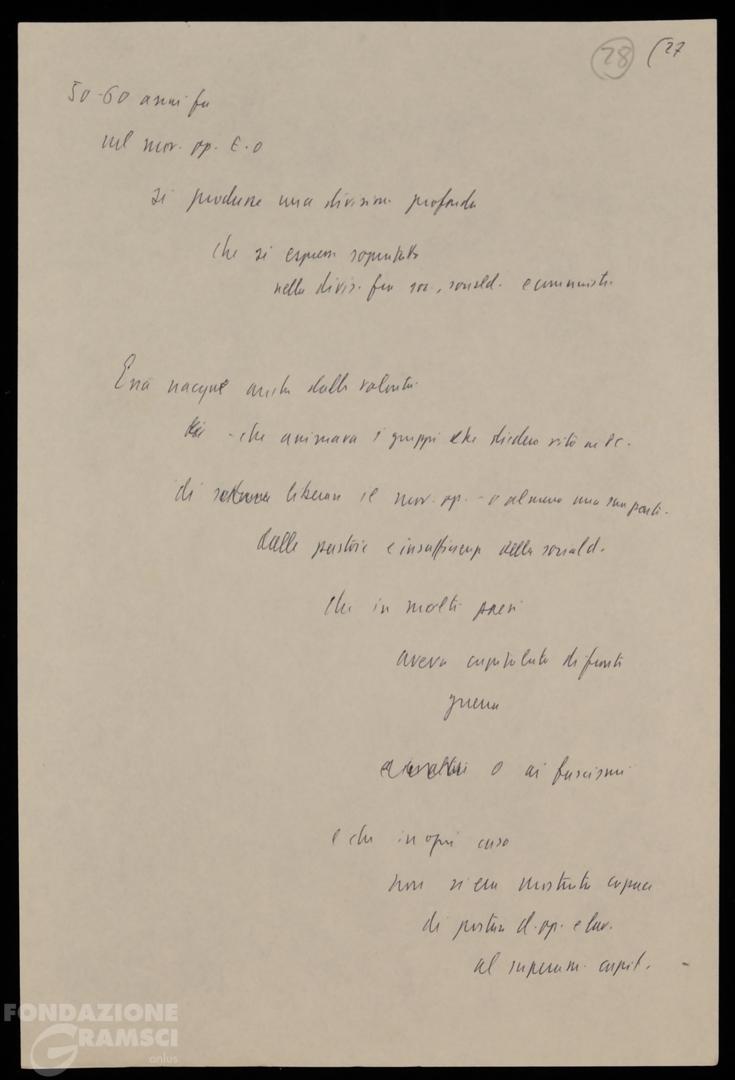 28 (27
50-60 anni fa
nel mov. op. E. O
si produsse una division. profonda
che si espresse soprattutto
nella divis. fra soc., sociald. e comunisti.
Essa nacque anche dalla volontà
- che animava i gruppi che diedero vita ai PC -
di liberare il mov. op. - o almeno una sua parte -
dalle pastoie e insufficienze della sociald.
che in molti paesi
aveva capitolato di fronte
guerra
o ai fascismi
e che in ogni caso
non si era mostrata capace
di portare cl. op. e lav.
al superam. capit. -
FONDAZIONE
GRAMSCI
onlus